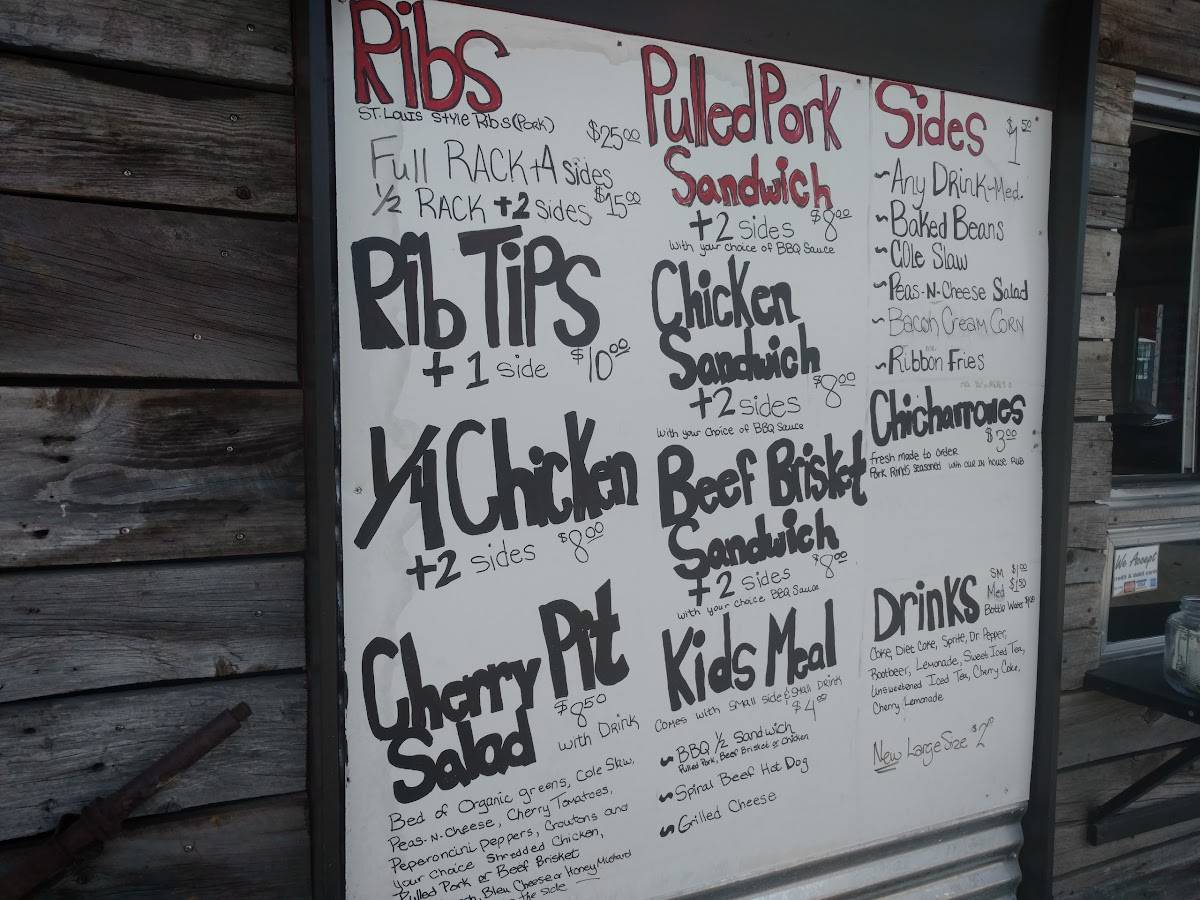 Ribs
ST. Louis Style Ribs (Pork)
$25.00
Full RACK + 4 sides
1/2 RACK +2 sides $15.00
Rib Tips
+1 side $10.00
1/4 Chicken
+2 sides $8.00
Cherry Pit
Salad
$8.50
with Drink
Bed of Organic greens, Cole Slaw,
Peas-N-Cheese, Cherry Tomatoes,
Peperoncini peppers, Croutons and
your choice Shredded Chicken,
Pulled Pork or Beef Brisket
Bleu Cheese or Honey Mustard
the side
Pulled Pork
Sandwich
+2 sides $8.00
with your choice of BBQ Sauce
Chicken
Sandwich
+2 sides $8.00
with your choice of BBQ Sauce
Beef Brisket
Sandwich
+2 sides $8.00
with your choice BBQ Sauce
Kids Meal
Comes with small side & small Drink
$4.00
~ BBQ 1/2 Sandwich
Pulled Pork, Beef Brisket or Chicken
~ Spiral Beef Hot Dog
~ Grilled Cheese
Sides $1.50
~ Any Drink-Med.
~ Baked Beans
~ Cole Slaw
~ Peas-N-Cheese Salad
~ Bacon Cream Corn
~ Ribbon Fries
Chicharrones
$3.00
Fresh made to order
Pork Rinds seasoned with our in house RUB
Drinks
SM $1.00
Med $1.50
Bottle Water
Coke, Diet Coke, Sprite, Dr. Pepper,
Rootbeer, Lemonade, Sweet Iced Tea,
Unsweetened Iced Tea, Cherry Coke,
Cherry Lemonade
New Large Size $2.00
We Accept